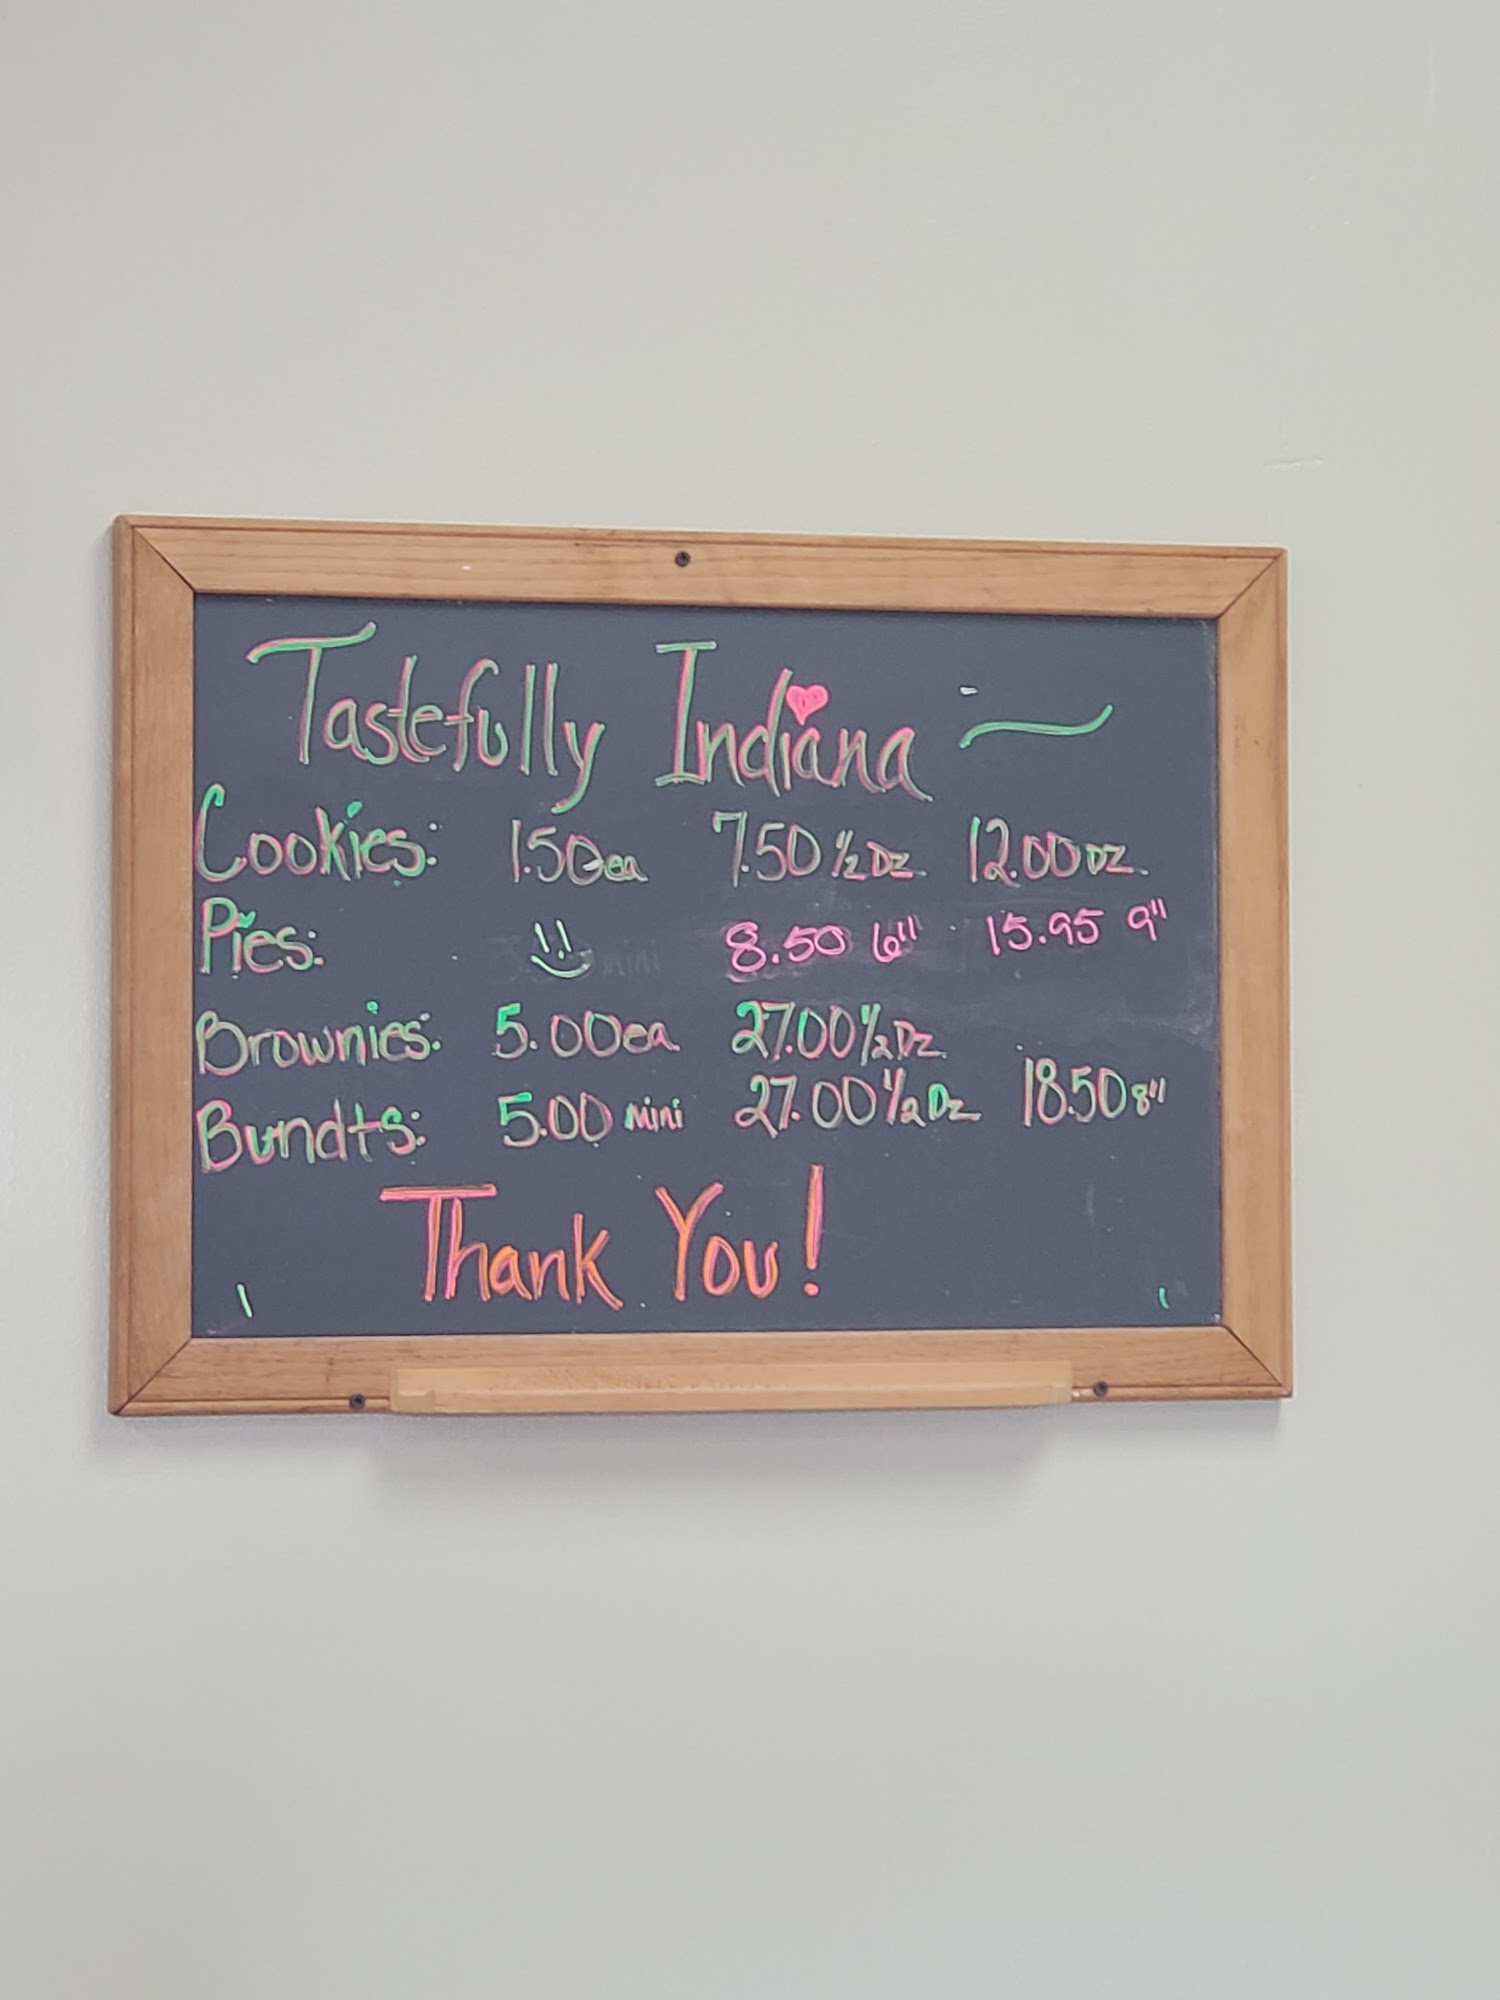 Tastefully Indiana
Cookies: 1.50 ea 7.50 ½ Dz 12.00 DZ
Pies: 8.50 6" 15.95 9"
Brownies: 5.00 ea 27.00 ½ Dz
Bundts: 5.00 mini 27.00 ½ Dz 18.50 8"
Thank You!